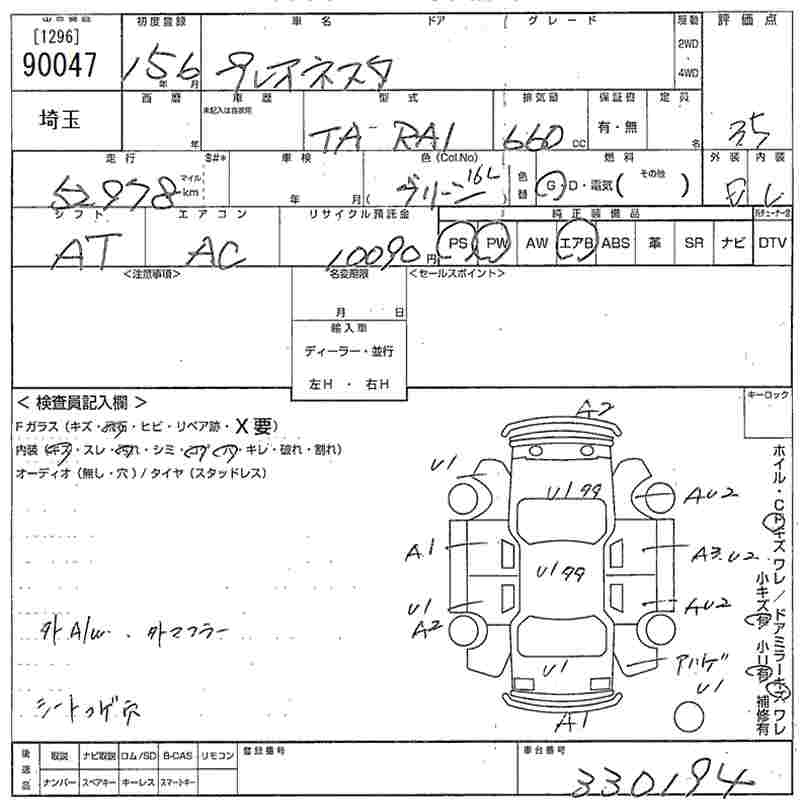 [1296]
90047
初度登録 車名 ドア グレード 駆動 評価点
15 年 6 月 プレオネスタ 2WD・4WD
埼玉 西暦 年 車歴 型式 排気量 保証書 定員
未記入は自家用 TA-RA1 660 CC 有・無 名 3.5
走行 車検 色(Col.No) 色替 燃料 外装 内装
52978 マイル km 年 月 ( グリーン 16L ) G・D・電気( その他 )
シフト エアコン リサイクル預託金 純正装備品
AT AC 10090 円 PS PW AW エアB ABS 革 SR ナビ DTV
<注意事項> 名変期限 <セールスポイント>
月 日
輸入車
ディーラー・並行
左H ・ 右H
キーロック
< 検査員記入欄 >
Fガラス (キズ・飛石・ヒビ・リペア跡・X要)
内装 (キズ・スレ・汚れ・シミ・コゲ・穴・キレ・破れ・割れ)
オーディオ (無し・穴) / タイヤ (スタッドレス)
A2
U1 U1 99 AU2
A1 U1 99 A3.U2
U1 AU2
A2
U1 アハゲ U1
A1
外A/W. 外マフラー
シートコゲ穴
ホイル・CPキズ ワレ / ドアミラーキズ ワレ
小キズ有 小U有 補修有
後送品 取説 ナビ取説 ロム/SD B-CAS リモコン 登録番号 車台番号
ナンバー スペアキー キーレス スマートキー 330194